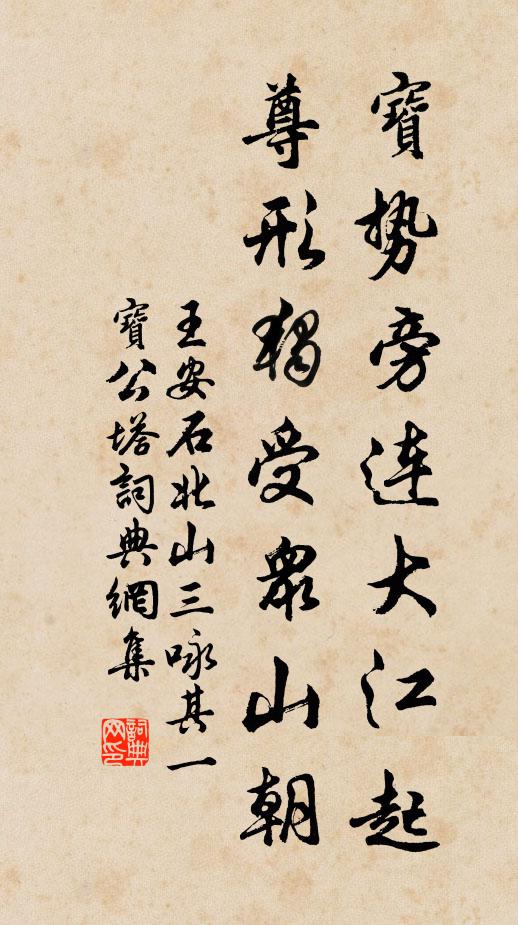 寶勢旁連大江起
尊形獨受眾山朝
王安石北山三咏其一
寶公塔詞典網集
詞典网印